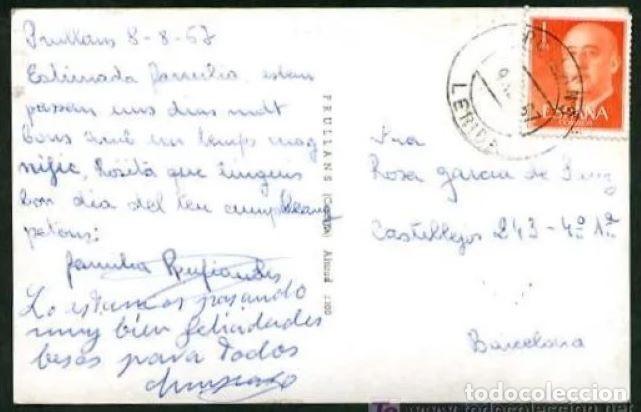 Prullans 8-8-67
Estimada familia, estem
passan uns dias molt
bons amb un temps mag
nific, Rosita que tinguis
bon dia del teu cumpleanys
petons:
familia
Lo estamos pasando
muy bien felicidades
besos para todos
PRULLANS (Cerdaña) Altitud 1100
LERIDA
1 PTA
ESPAÑA
CORREOS
Sra
Rosa Garcia de Puig
Castillejos 243-4º 1ª
Barcelona
todocoleccion